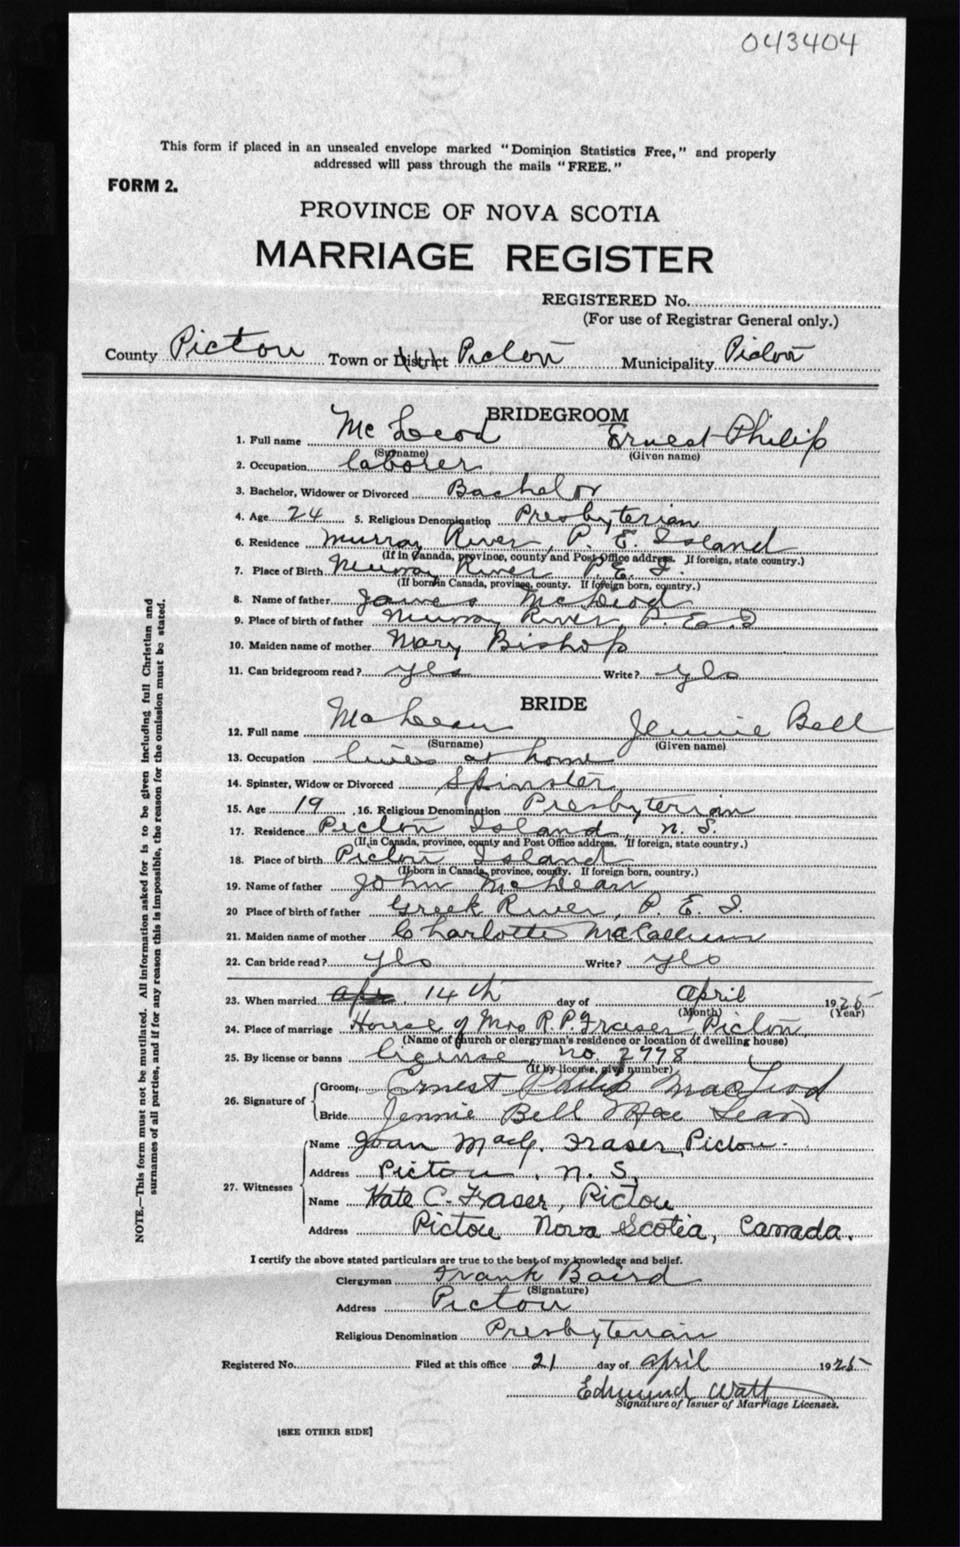 043404
This form if placed in an unsealed envelope marked "Dominion Statistics Free," and properly
addressed will pass through the mails "FREE."
FORM 2.
PROVINCE OF NOVA SCOTIA
MARRIAGE REGISTER
REGISTERED No.
(For use of Registrar General only.)
County Pictou Town or District Pictou Municipality Pictou
BRIDEGROOM
1. Full name McLeod Ernest Philip
(Surname) (Given name)
2. Occupation laborer
3. Bachelor, Widower or Divorced Bachelor
4. Age 24 5. Religious Denomination Presbyterian
6. Residence Murray River, P. E. Island
(If in Canada, province, county and Post Office address. If foreign, state country.)
7. Place of Birth Murray River P. E. I.
(If born in Canada, province, county. If foreign born, country.)
8. Name of father James McLeod
9. Place of birth of father Murray River, P. E. I
10. Maiden name of mother Mary Bishop
11. Can bridegroom read? yes Write? yes
BRIDE
12. Full name McLean Jennie Bell
(Surname) (Given name)
13. Occupation lives at home
14. Spinster, Widow or Divorced Spinster
15. Age 19 16. Religious Denomination Presbyterian
17. Residence Pictou Island, N. S.
(If in Canada, province, county and Post Office address. If foreign, state country.)
18. Place of birth Pictou Island
(If born in Canada, province, county. If foreign born, country.)
19. Name of father John McLean
20 Place of birth of father Greek River, P. E. I.
21. Maiden name of mother Charlotte McCallum
22. Can bride read? yes Write? yes
23. When married 14th day of April 1925
(Month) (Year)
24. Place of marriage House of Mrs R. P. Fraser, Pictou,
(Name of church or clergyman's residence or location of dwelling house)
25. By license or banns license, no. 2998
(If by license, give number)
26. Signature of Groom, Ernest Philip MacLeod
Bride Jennie Bell MacLean
27. Witnesses Name Joan MacG. Fraser, Pictou.
Address Pictou, N. S.
Name Kate C. Fraser, Pictou
Address Pictou Nova Scotia, Canada.
I certify the above stated particulars are true to the best of my knowledge and belief.
Clergyman Frank Baird
(Signature)
Address Pictou
Religious Denomination Presbyterian
Registered No. Filed at this office 21 day of April 1925
Edmund Watt
Signature of Issuer of Marriage Licenses.
[SEE OTHER SIDE]
NOTE.—This form must not be mutilated. All information asked for is to be given including full Christian and
surnames of all parties, and if for any reason this is impossible, the reason for the omission must be stated.